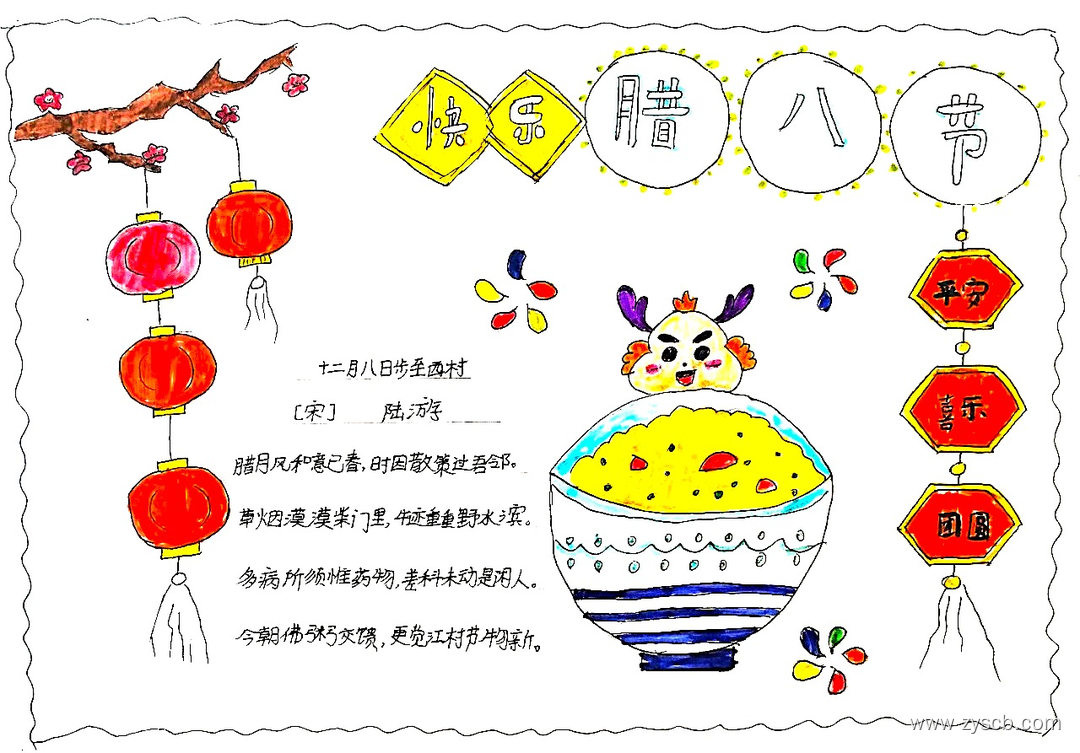 快乐腊八节
平安
喜乐
团圆
十二月八日步至西村
[宋] 陆游
腊月风和意已春,时因散策过吾邻。
草烟漠漠柴门里,牛迹重重野水滨。
多病所须惟药物,差科未动是闲人。
今朝佛粥交馈,更觉江村节物新。
www.zyscb.com